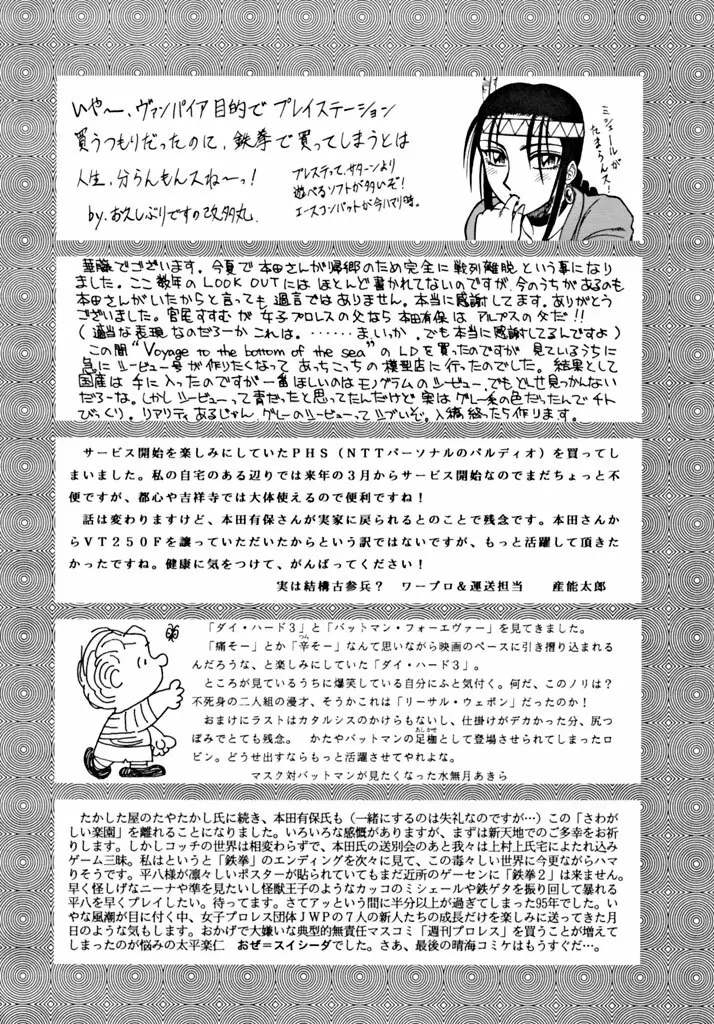 いや〜、ヴァンパイア目的でプレイステーション
買うつもりだったのに、鉄拳で買ってしまうとは
人生、分らんもんスね〜っ!
by.お久しぶりですの改多丸
プレステって、サターンより
遊べるソフトが多いぞ!
エースコンバットが今ハマり時。
ミシェールが
たまらんス!
華藤でございます。今夏で本田さんが帰郷のため完全に戦列離脱という事になり
ました。ここ数年のLOOK OUTにはほとんど書かれてないのですが、今のうちがあるのも
本田さんがいたからと言っても過言ではありません。本当に感謝してます。ありがとう
ございました。宮尾すすむが女子プロレスの父なら本田有保はアルプスの父だ!!
(適当な表現なのだろーかこれは。……ま、いっか、でも本当に感謝してるんですよ)
この間"Voyage to the bottom of the sea"のLDを買ったのですが見ているうちに
急にシービュー号が作りたくなってあっちこっちの模型店に行ったのでした。結果として
国産は手に入ったのですが一番ほしいのはモノグラムのシービュー、でもどしせ見っかんない
だろーな。しかしシービューって青だったと思ってたんだけど実はグレー系の色だったんでチト
びっくり。リアリティあるじゃん、グレーのシービューってシブいぞ。入稿終ったら作ります。
サービス開始を楽しみにしていたPHS(NTTパーソナルのパルディオ)を買ってし
まいました。私の自宅のある辺りでは来年の3月からサービス開始なのでまだちょっと不
便ですが、都心や吉祥寺では大体使えるので便利ですね!
話は変わりますけど、本田有保さんが実家に戻られるとのことで残念です。本田さんか
らVT250Fを譲っていただいたからという訳ではないですが、もっと活躍して頂きた
かったですね。健康に気をつけて、がんばってください!
実は結構古参兵? ワープロ&運送担当 産能太郎
「ダイ・ハード3」と「バットマン・フォーエヴァー」を見てきました。
「痛そー」とか「辛そー」なんて思いながら映画のペースに引き摺り込まれる
んだろうな、と楽しみにしていた「ダイ・ハード3」。
ところが見ているうちに爆笑している自分にふと気付く。何だ、このノリは?
不死身の二人組の漫才、そうかこれは「リーサル・ウェポン」だったのか!
おまけにラストはカタルシスのかけらもないし、仕掛けがデカかった分、尻つ
ぼみでとても残念。 かたやバットマンの足枷として登場させられてしまったロ
ビン。どうせ出すならもっと活躍させてやれよな。
マスク対バットマンが見たくなった水無月あきら
たかした屋のたやたかし氏に続き、本田有保氏も(一緒にするのは失礼なのですが…)この「さわが
しい楽園」を離れることになりました。いろいろな感慨がありますが、まずは新天地でのご多幸をお祈
りします。しかしコッチの世界は相変わらずで、本田氏の送別会のあと我々は上村上氏宅によたれ込み
ゲーム三昧。私はというと「鉄拳」のエンディングを次々に見て、この毒々しい世界に今更ながらハマ
りそうです。平八様が凛々しいポスターが貼られていてもまだ近所のゲーセンに「鉄拳2」は来ません。
早く怪しげなニーナや準を見たいし怪獣王子のようなカッコのミシェールや鉄ゲタを振り回して暴れる
平八を早くプレイしたい。待ってます。さてアッという間に半分以上が過ぎてしまった95年でした。い
やな風潮が目に付く中、女子プロレス団体JWPの7人の新人たちの成長だけを楽しみに送ってきた月
日のような気もします。おかげで大嫌いな典型的無責任マスコミ「週刊プロレス」を買うことが増えて
しまったのが悩みの太平楽仁 おぜ=スイシーダでした。さあ、最後の晴海コミケはもうすぐだ…。